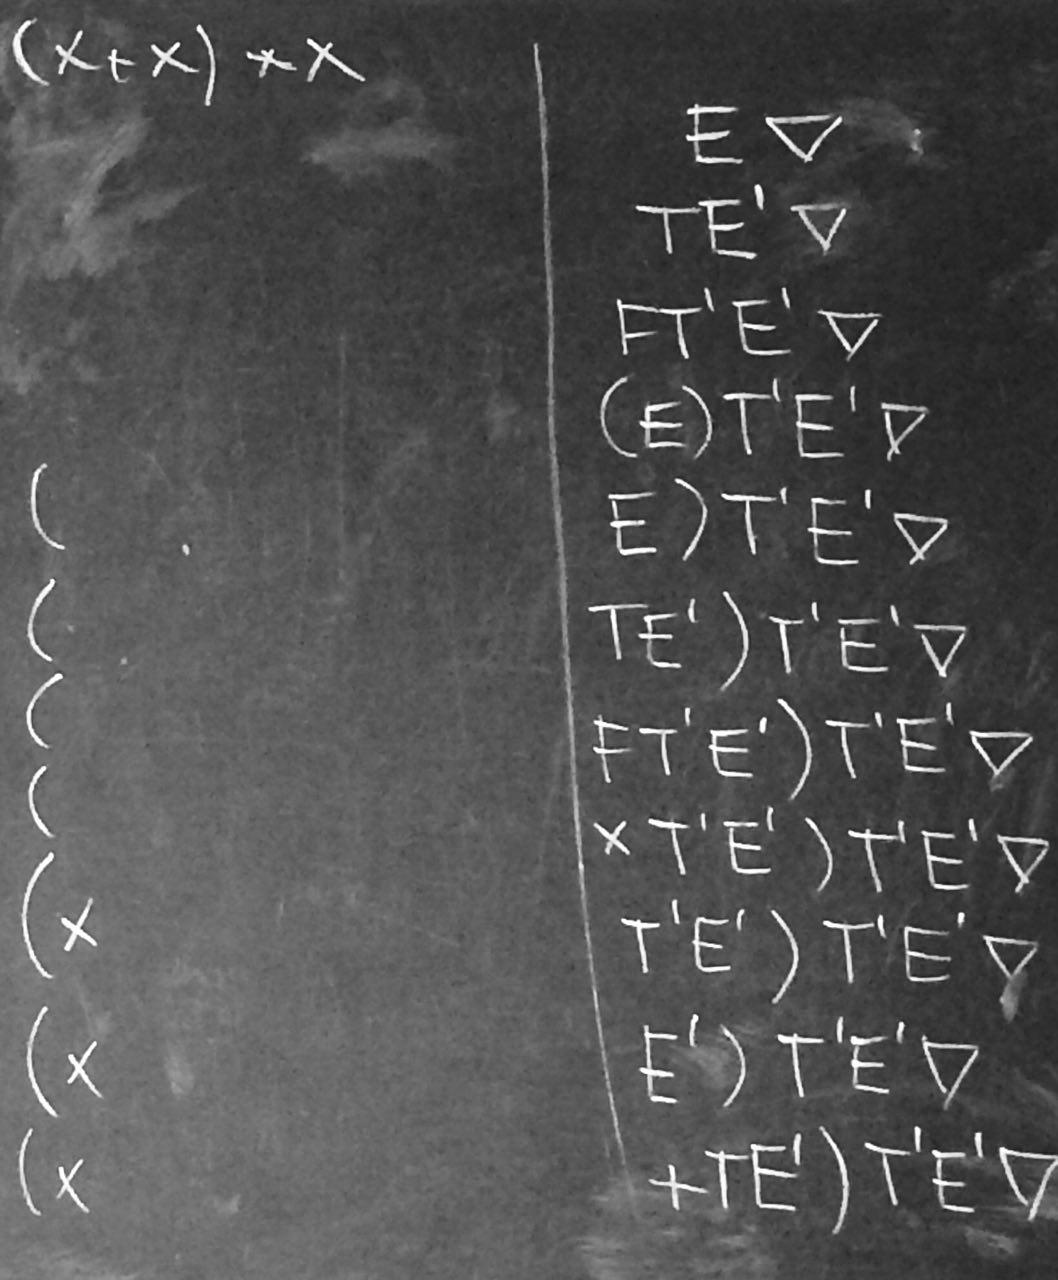 (x+x)*x
E ▽
TE' ▽
FT'E' ▽
(E)T'E' ▽
( E)T'E' ▽
( TE')T'E' ▽
( FT'E')T'E' ▽
( xT'E')T'E' ▽
(x T'E')T'E' ▽
(x E')T'E' ▽
(x +TE')T'E' ▽